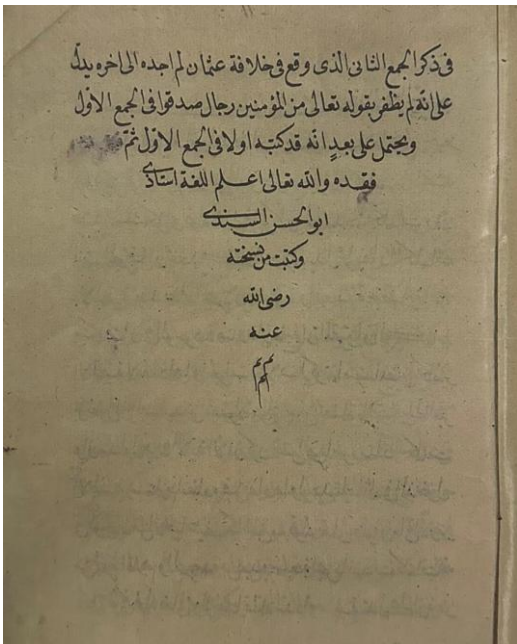 فى ذكر الجمع الثانى الذى وقع فى خلافة عثمان لم اجده الى اخره يدل
على انه لم يظفر بقوله تعالى من المؤمنين رجال صدقوا فى الجمع الاول
ويحتمل على بعدٍ انه قد كتبه اولا فى الجمع الاول ثمّ
فقده والله تعالى اعلم الفه استاذى
ابو الحسن السندى
وكتبت من نسخته
رضى الله
عنه
م م
م